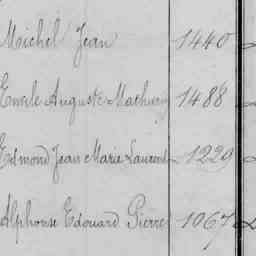 Michel Jean 1440
Emile Auguste Mathurin 1488
Edmond Jean Marie Laurent 1229
Alphonse Edouard Pierre 1067